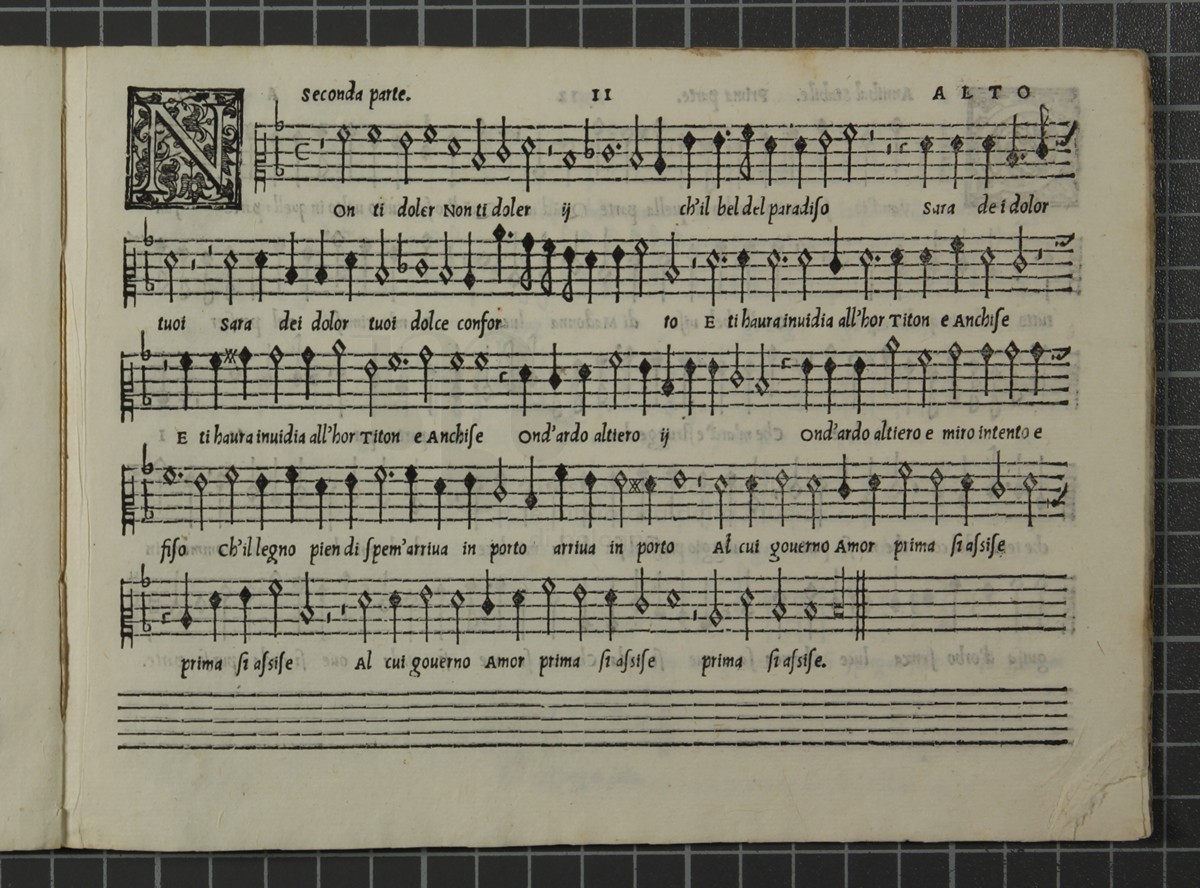 Seconda parte. 11 ALTO
NOn ti doler Non ti doler ij ch'il bel del paradiso Sara de i dolor
tuoi Sara dei dolor tuoi dolce confor to E ti haura inuidia all'hor Titon e Anchise
E ti haura inuidia all'hor Titon e Anchise Ond'ardo altiero ij Ond'ardo altiero e miro intento e
fiso Ch'il legno pien di spem'arriua in porto arriua in porto Al cui gouerno Amor prima si assise
prima si assise Al cui gouerno Amor prima si assise prima si assise.